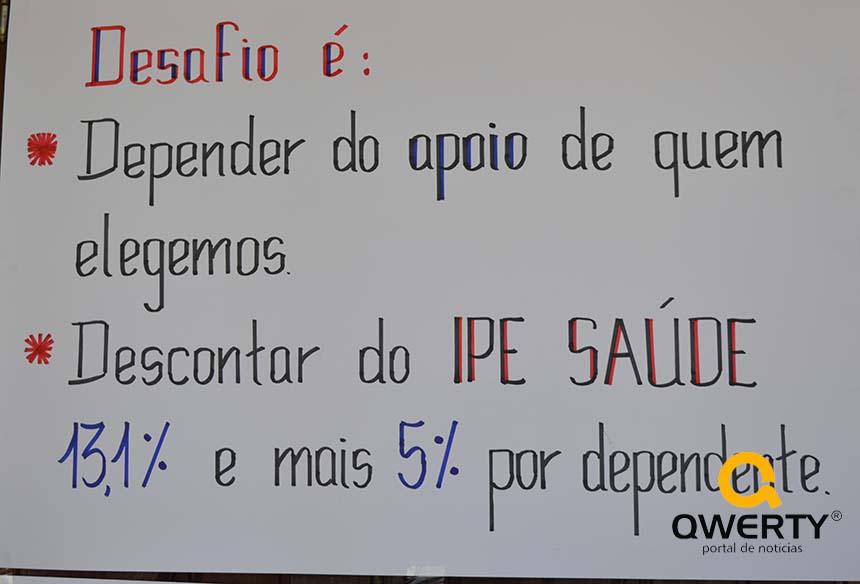 Desafio é:
* Depender do apoio de quem
elegemos.
* Descontar do IPE SAÚDE
13,1% e mais 5% por dependente.
QWERTY®
portal de notícias